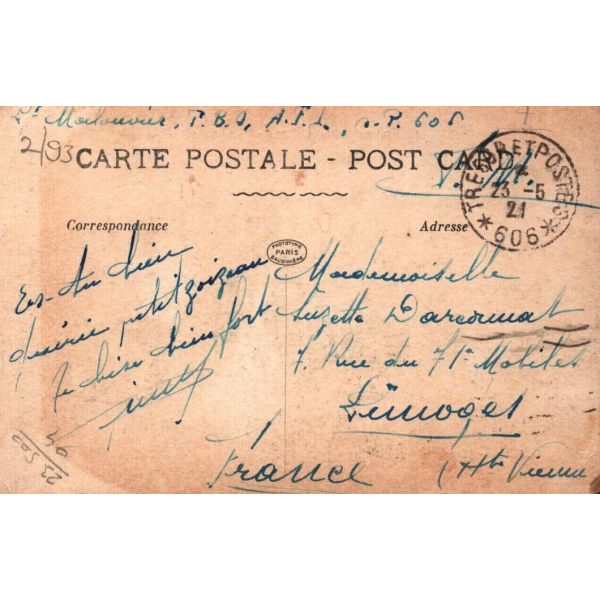 Lt Malouvier, T.B.J, A.F.L., s.P. 606
2/93
CARTE POSTALE - POST CARD
F.M.
TRESOR ET POSTES
23 -5
21
* 606 *
Correspondance
Adresse
PHOTOTYPIE
PARIS
BAUDINIÈRE
Es-tu bien
petit zoizeau
Je bise bien fort
Mademoiselle
Suzette Darcormat
7. Rue du 71e Mobiles
Limoges
France
(Hte Vienne
23 502